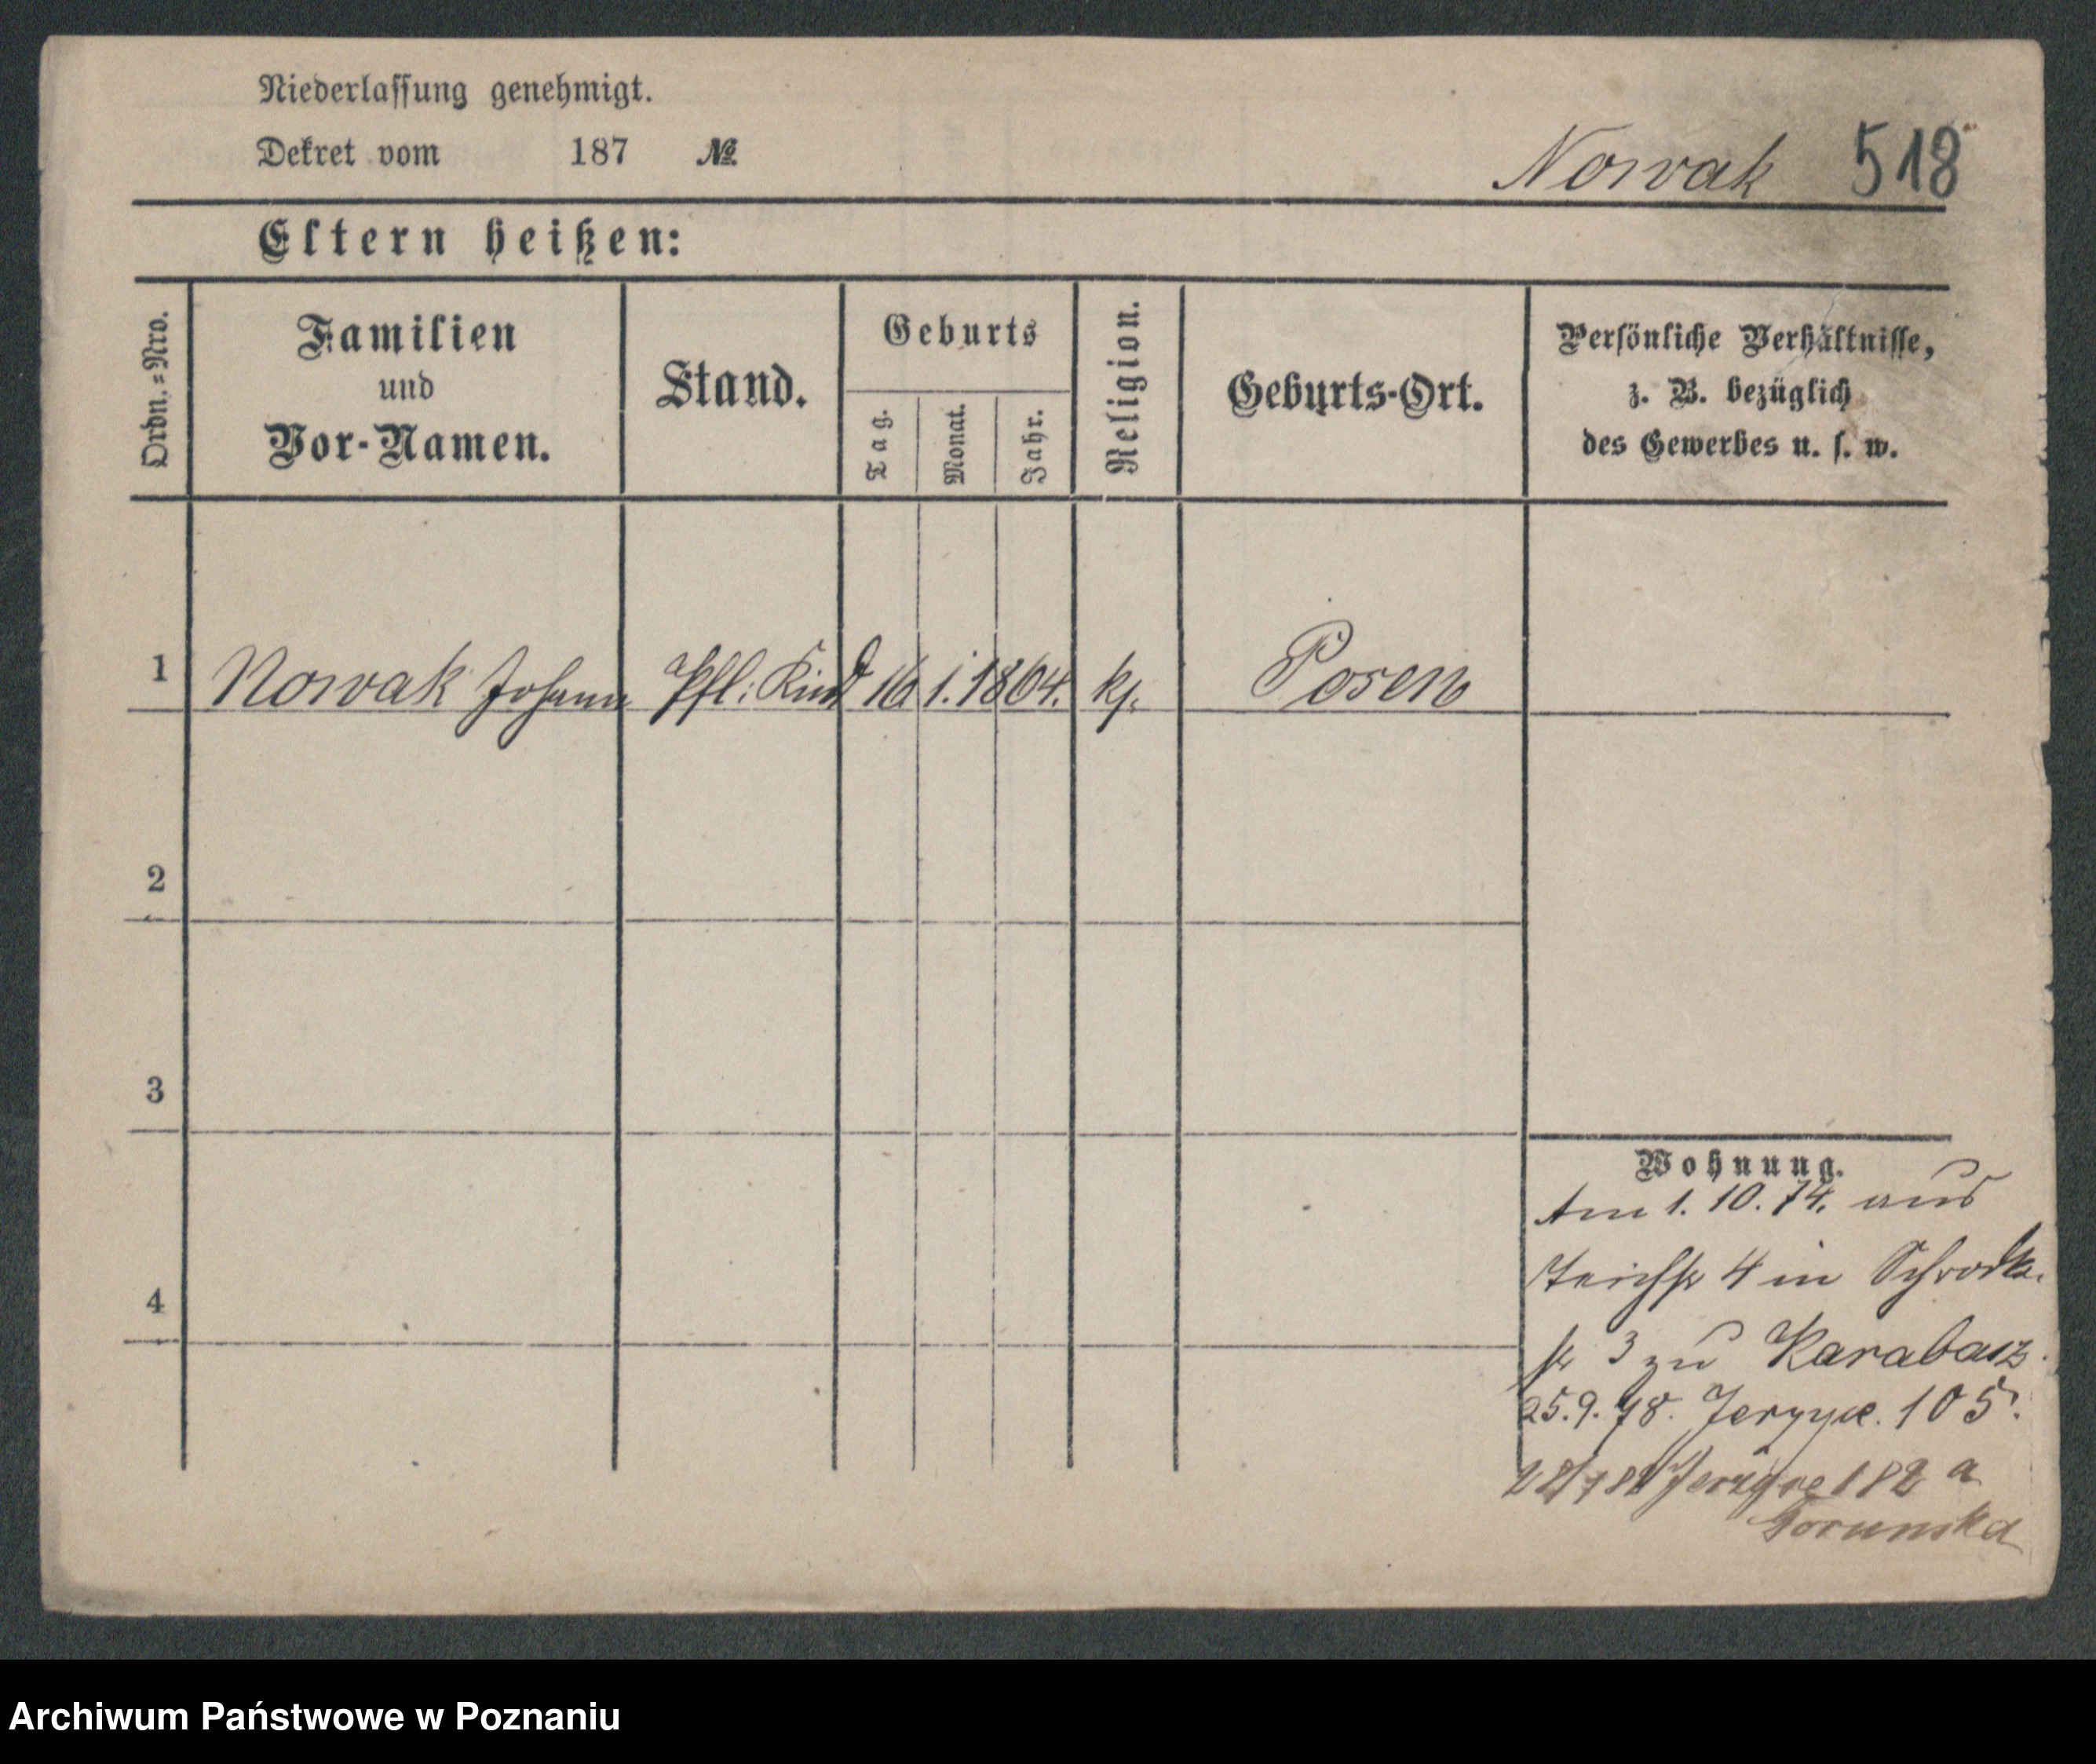 Niederlassung genehmigt.
Dekret vom 187 №
Nowak 518
Eltern heißen:
Ordn.=Nro.
Familien
und
Vor-Namen.
Stand.
Geburts
Tag.
Monat.
Jahr.
Religion.
Geburts-Ort.
Persönliche Verhältnisse,
z. B. bezüglich
des Gewerbes u. s. w.
1 Nowak Johann Pfl: Kind 16 1. 1864. kf. Posen
2
3
4
Wohnung.
Am 1. 10. 74. aus
Teichstr 4 in Schrodk.
str 3 zu Karabasz.
25. 9. 78. Jerzyce. 105.
Jerzyce 182 a
Torunska
Archiwum Państwowe w Poznaniu